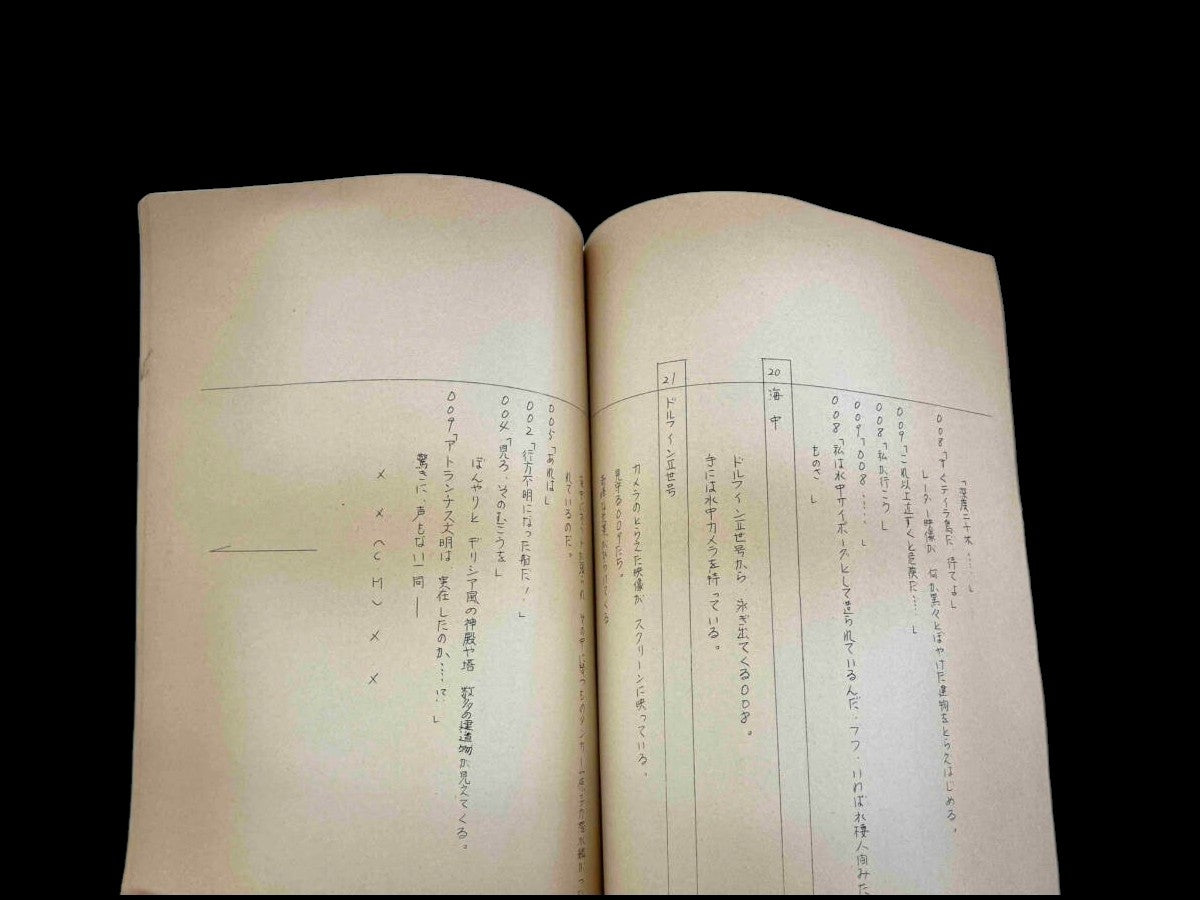 「深度二十米……」
008「すぐティラ島だ 待てよ」
レーダー映像が 何か黒々とぼやけた建物をとらえはじめる。
009「これ以上近すくと危険だ……」
008「私が行こう」
009「008……」
008「私は水中サイボーグとして造られているんだ、フフ、いわば水棲人間みた
ものさ」
20 海中
ドルフィン立世号から 泳ぎ出てくる008。
手には水中カメラを持っている。
21 ドルフィン立世号
カメラのとらえた映像が スクリーンに映っている。
見守る009たち。
れているのだ。
005「あれは」
002「行方不明になった船だ!」
004「見ろ、そのむこうを」
ぼんやりと ギリシア風の神殿や塔 数多の建造物が見えてくる。
009「アトランナス文明は 実在したのか……に」
驚きに、声もない一同——
× × (CM) × ×